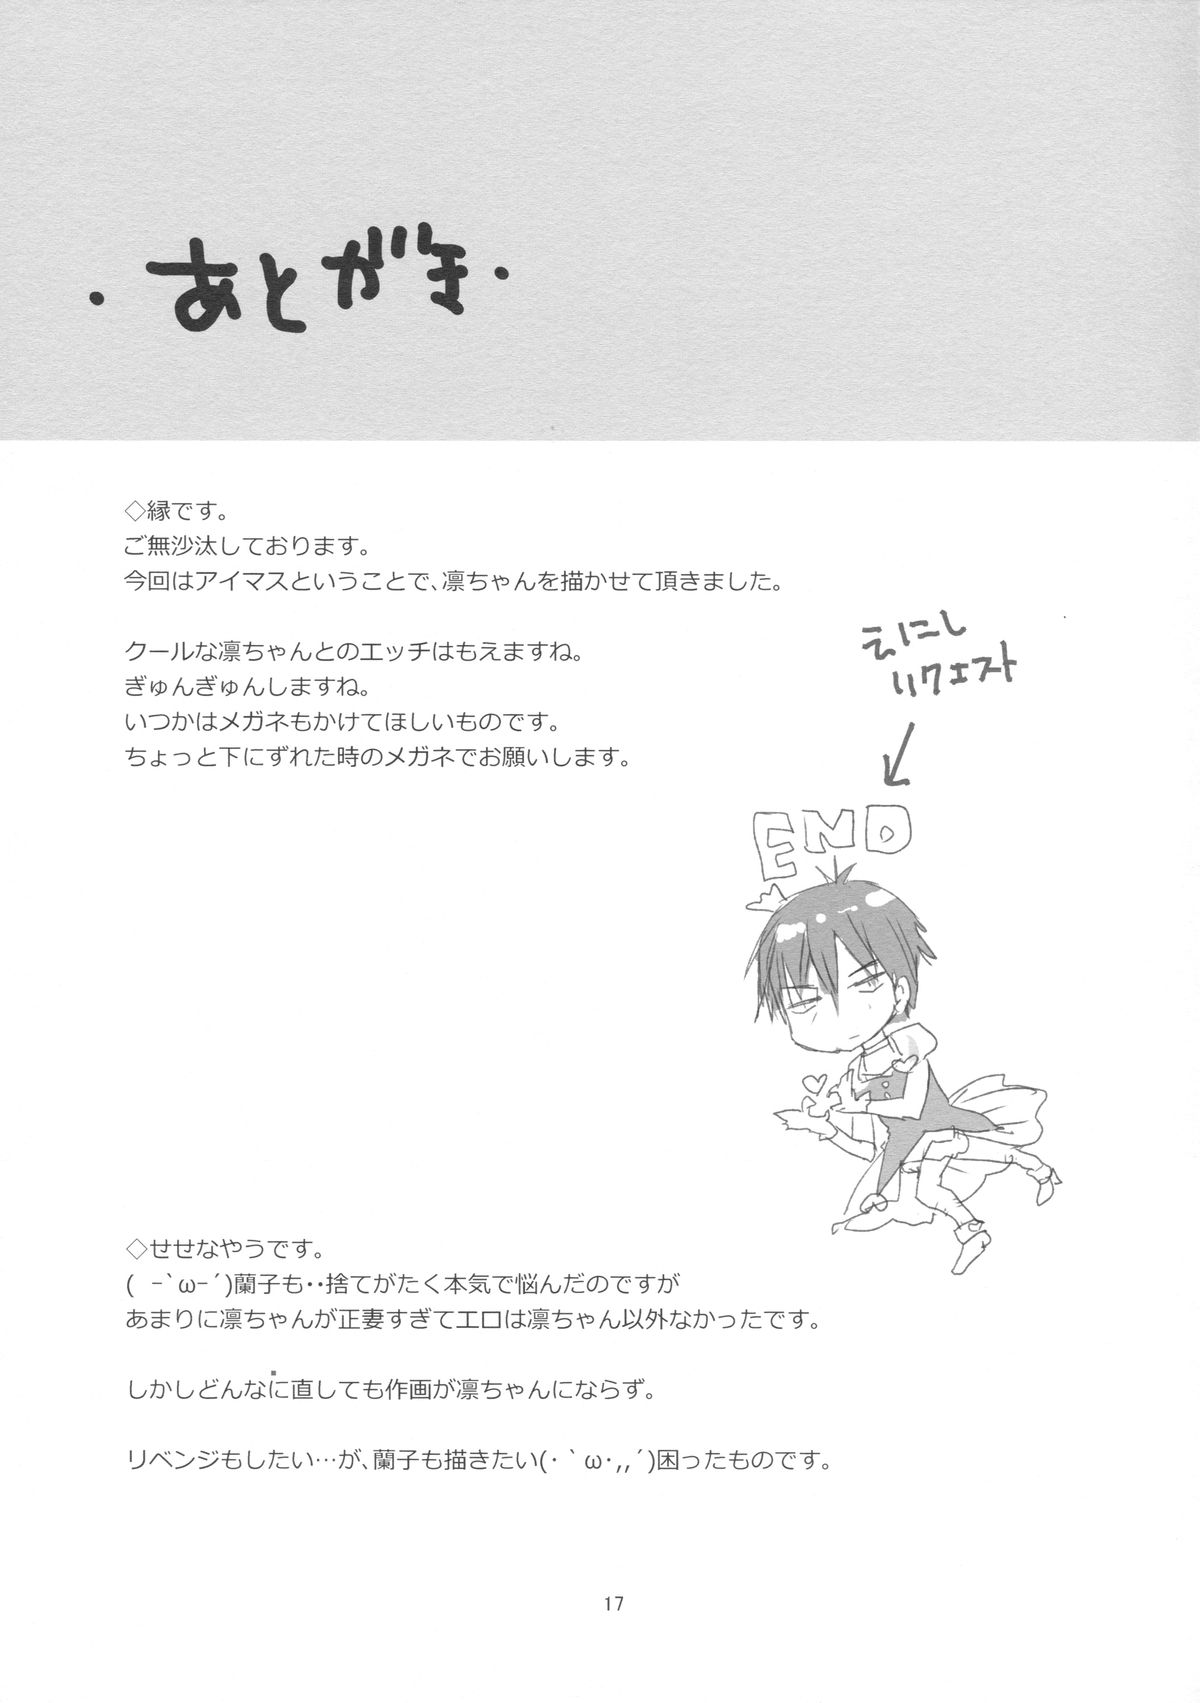 ・あとがき・
◇縁です。
ご無沙汰しております。
今回はアイマスということで、凛ちゃんを描かせて頂きました。
クールな凛ちゃんとのエッチはもえますね。
ぎゅんぎゅんしますね。
いつかはメガネもかけてほしいものです。
ちょっと下にずれた時のメガネでお願いします。
えにし
リクエスト
END
◇せせなやうです。
( −`ω−´)蘭子も・・捨てがたく本気で悩んだのですが
あまりに凛ちゃんが正妻すぎてエロは凛ちゃん以外なかったです。
しかしどんなに直しても作画が凛ちゃんにならず。
リベンジもしたい…が、蘭子も描きたい(・｀ω・,,´)困ったものです。
17